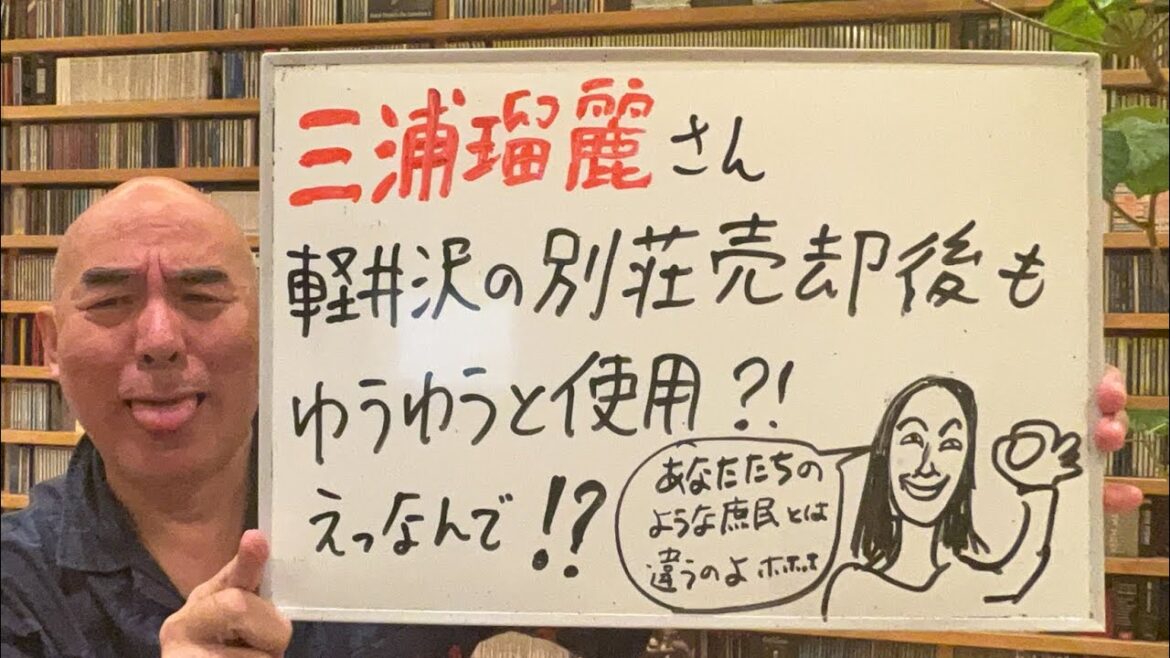 三浦瑠麗さん
軽井沢の別荘売却後も
ゆうゆうと使用?!
えっなんで!?
あなたたちの
ような庶民とは
違うのよ ホホホ